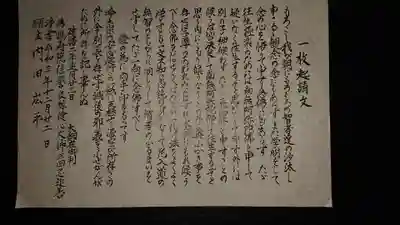 一枚起請文
もろこし我朝にもろもろの智者達の沙汰し
申さるる観念の念にもあらず又学問をして
念の心を悟りて申す念佛にもあらずたゞ
往生極楽のためには南無阿弥陀佛と申て
疑なく往生するぞと思とりて申す外には
別の子細候はず但三心四修と申す事の
候は皆決定して南無阿弥陀佛にて往生するぞと
思ふ内に籠り候なり此外に奥ふかき事を
存ぜば二尊のあはれみにはづれ本願にもれ候ふ
べし念佛を信ぜん人はたとひ一代の法をよくよく
学すとも一文不知の愚鈍の身になして尼入道の
無智のともがらに同じうして智者のふるまひを
せずしてたゞ一向に念佛すべし
證の為に両手印を以てす
浄土宗の安心起行此一紙に至極せり源空が所存
此外に全く別義を存ぜず滅後の邪義をふせがん
ために所存を記し畢
建暦二年正月二十三日 大師在御判
浄書 令和三年十二月廿二日
願主 内田